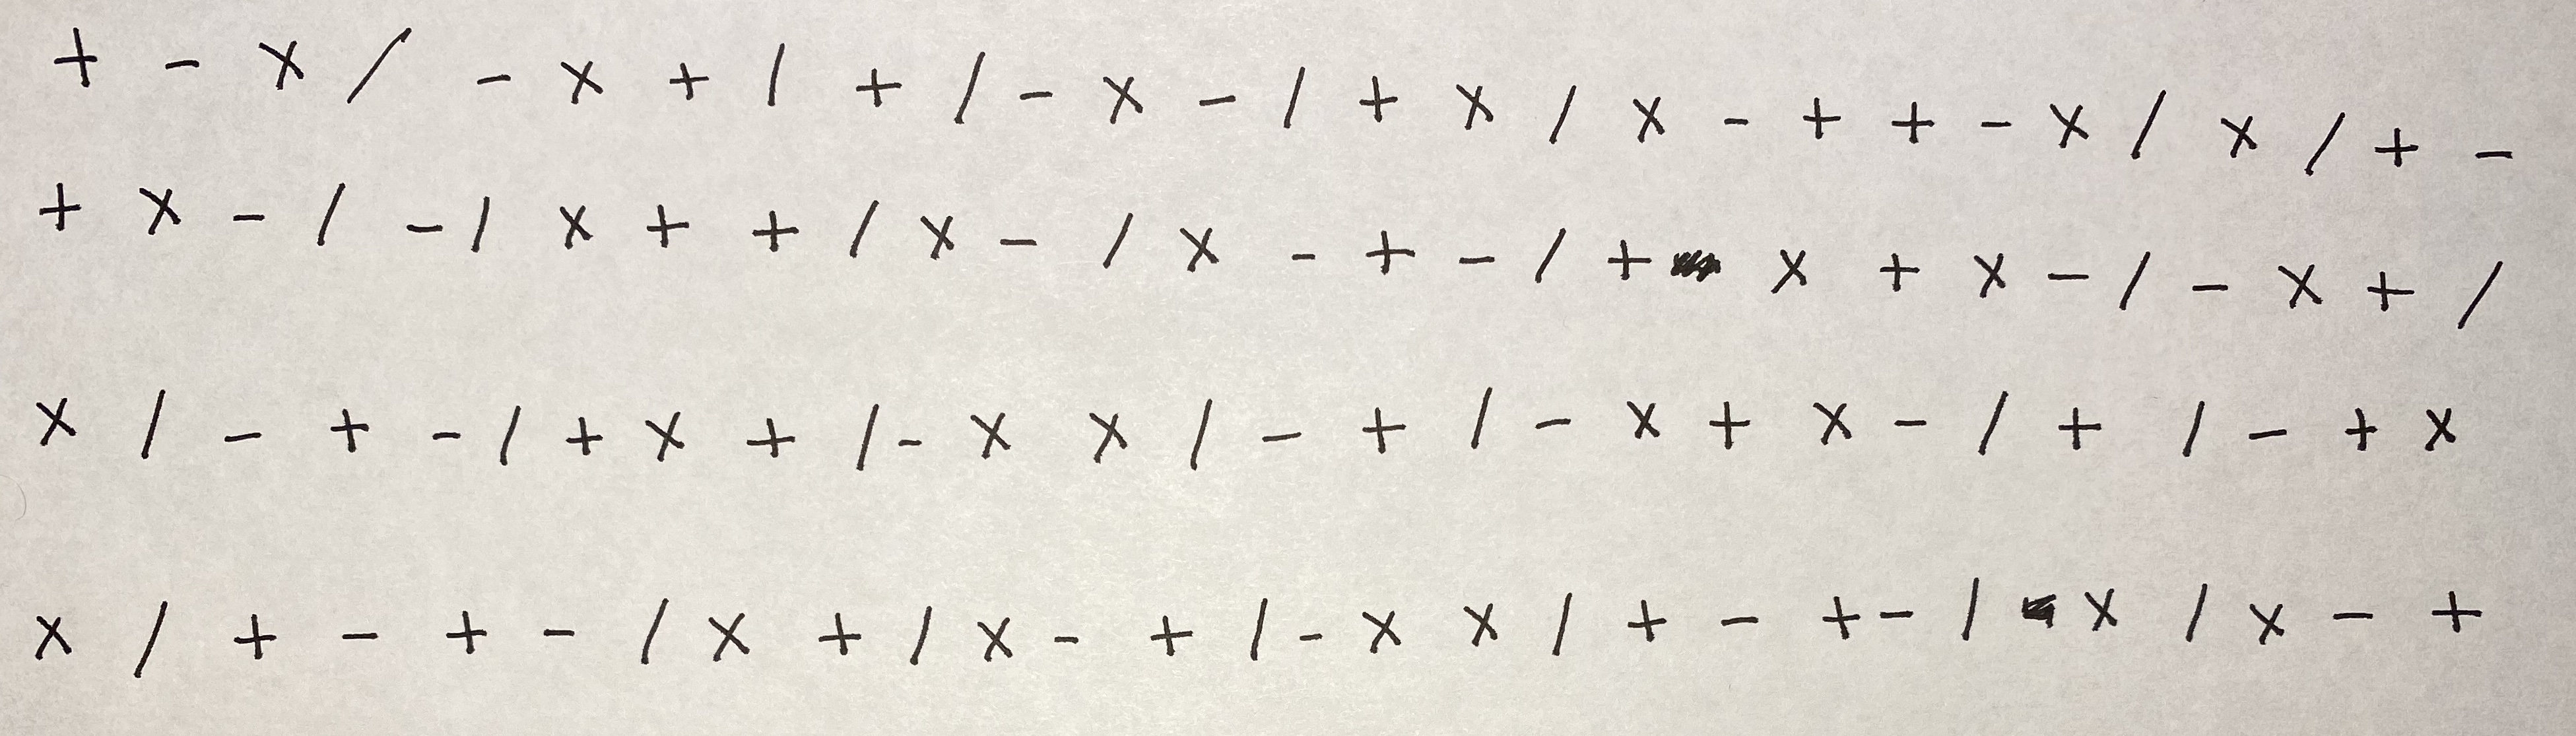 + - x / - x + / + / - x - / + x / x - + + - x / x / + -
+ x - / - / x + + / x - / x - + - / + x + x - / - x + /
x / - + - / + x + / - x x / - + / - x + x - / + / - + x
x / + - + - / x + / x - + / - x x / + - + - / x / x - +